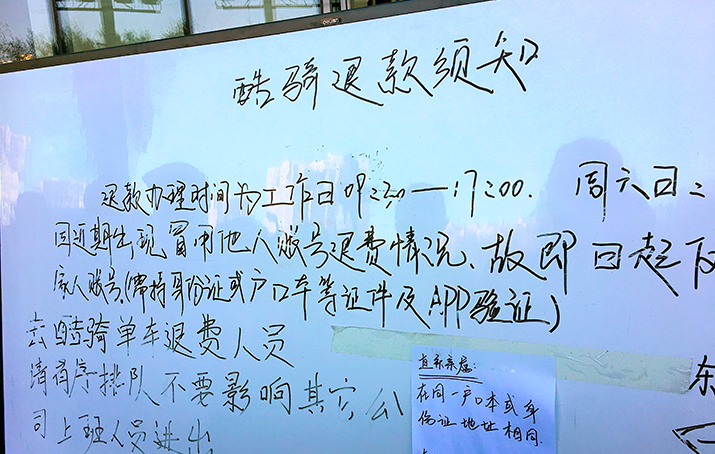 deli
酷骑退款须知
退款办理时间为工作日09:30—17:00. 周六日:
因近期出现冒用他人账号退费情况、故即日起
家人账号,(需持身份证或户口本等证件及APP验证)
去酷骑单车退费人员
请有序排队不要影响其它公
司上班人员进出
直系亲属:
在同一户口本或身
份证地址相同.
东